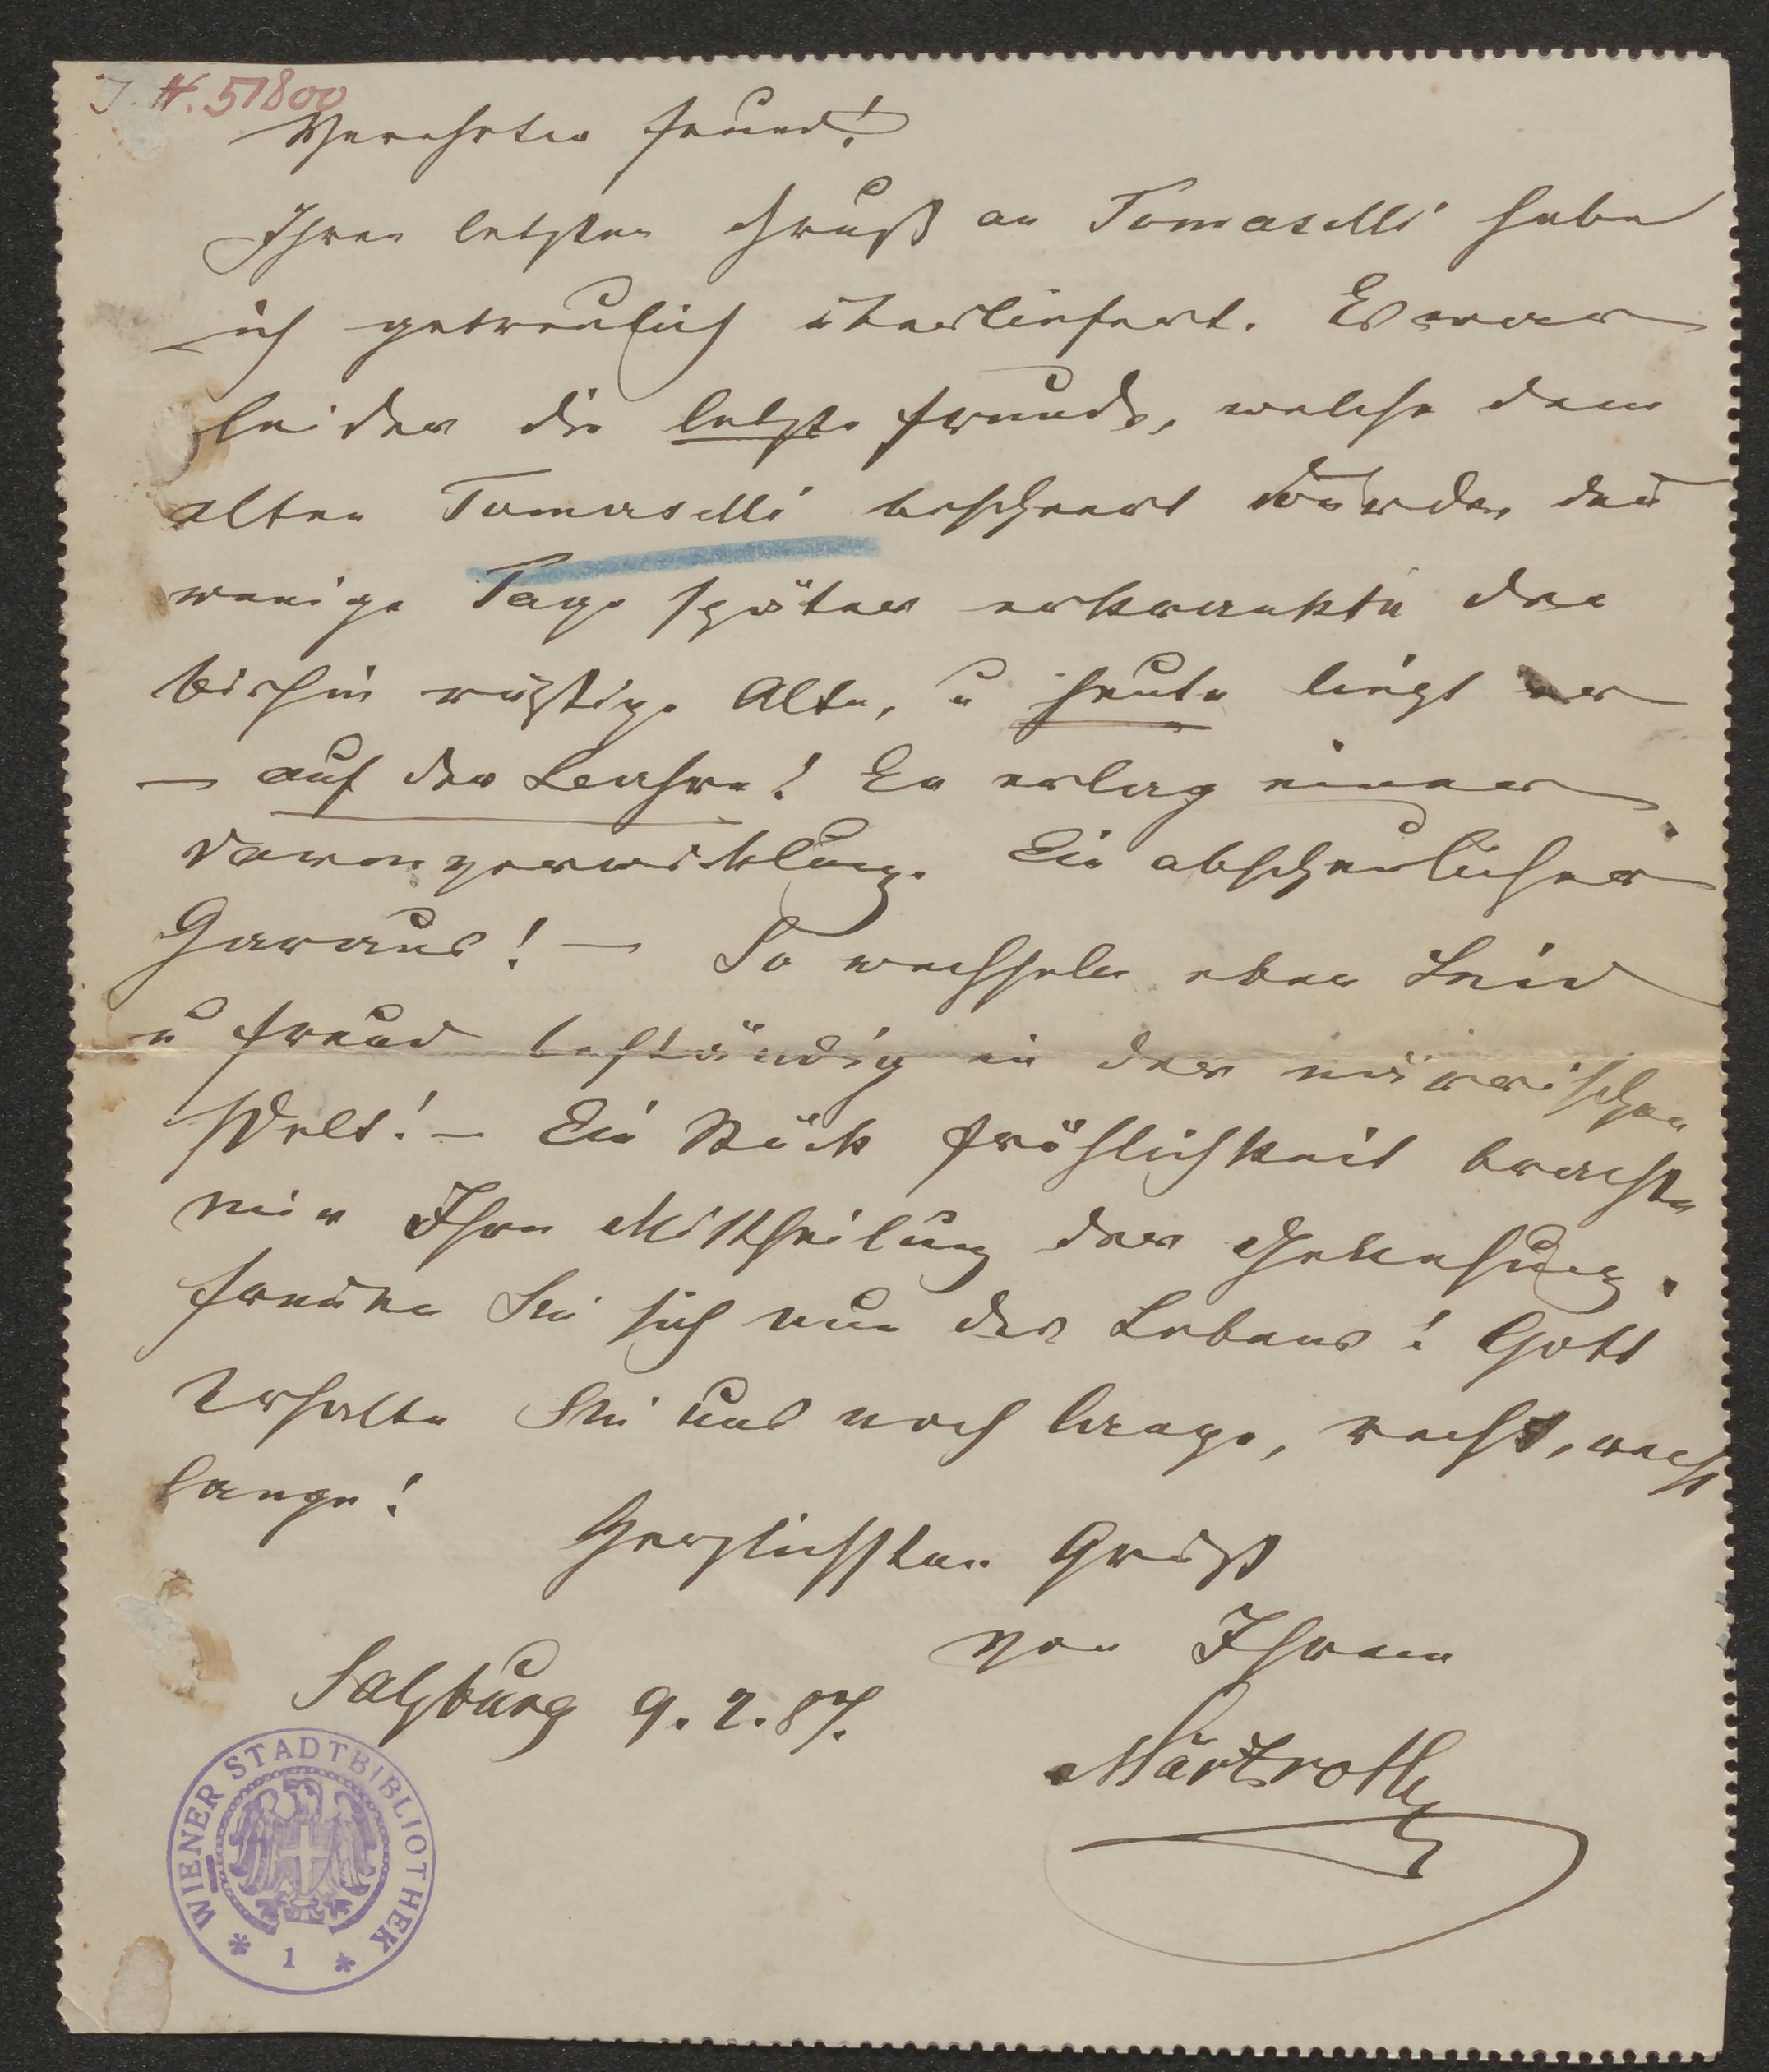 J. N. 51800
Verehrter Freund!
Ihren letzten Gruß an Tomaselli habe
ich getreulich überliefert. Es war
leider die letzte Freude, welche dem
alten Tomaselli bescheert wurde, den
wenige Tage später erkrankte der
bishin rüstige Alte, u heute liegt er
— auf der Baahre! Er erlag einer
Darmverwicklung. Ein abscheulicher
Garaus! — So wechseln eben Leid
u Freud beständig in der närrischen
Welt! — Ein Stück Fröhlichkeit brachte
mir Ihre Mittheilung der Genesung.
Freuen Sie sich nun des Lebens! Gott
erhalte Sie uns noch lange, recht, recht
lange!
Herzlichsten Gruß
von Ihrem
Salzburg 9. 2. 87.
Märzroth
WIENER STADTBIBLIOTHEK
* 1 *